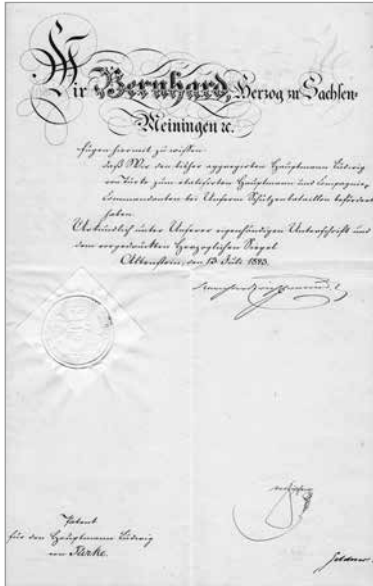 Wir Bernhard, Herzog zu Sachsen-
Meiningen ꝛc.
fügen hiermit zu wissen
daß Wir den bisher aggregirten Hauptmann Ludwig
von Türke zum etatsmäßigen Hauptmann und Compagnie-
Commandanten bei Unserm Schützenbataillon befördert
haben.
Urkundlich unter Unserer eigenhändigen Unterschrift und
dem vorgedruckten Herzoglichen Siegel
Altenstein, den 13 Juli
Patent
für den Hauptmann Ludwig
von Türke.